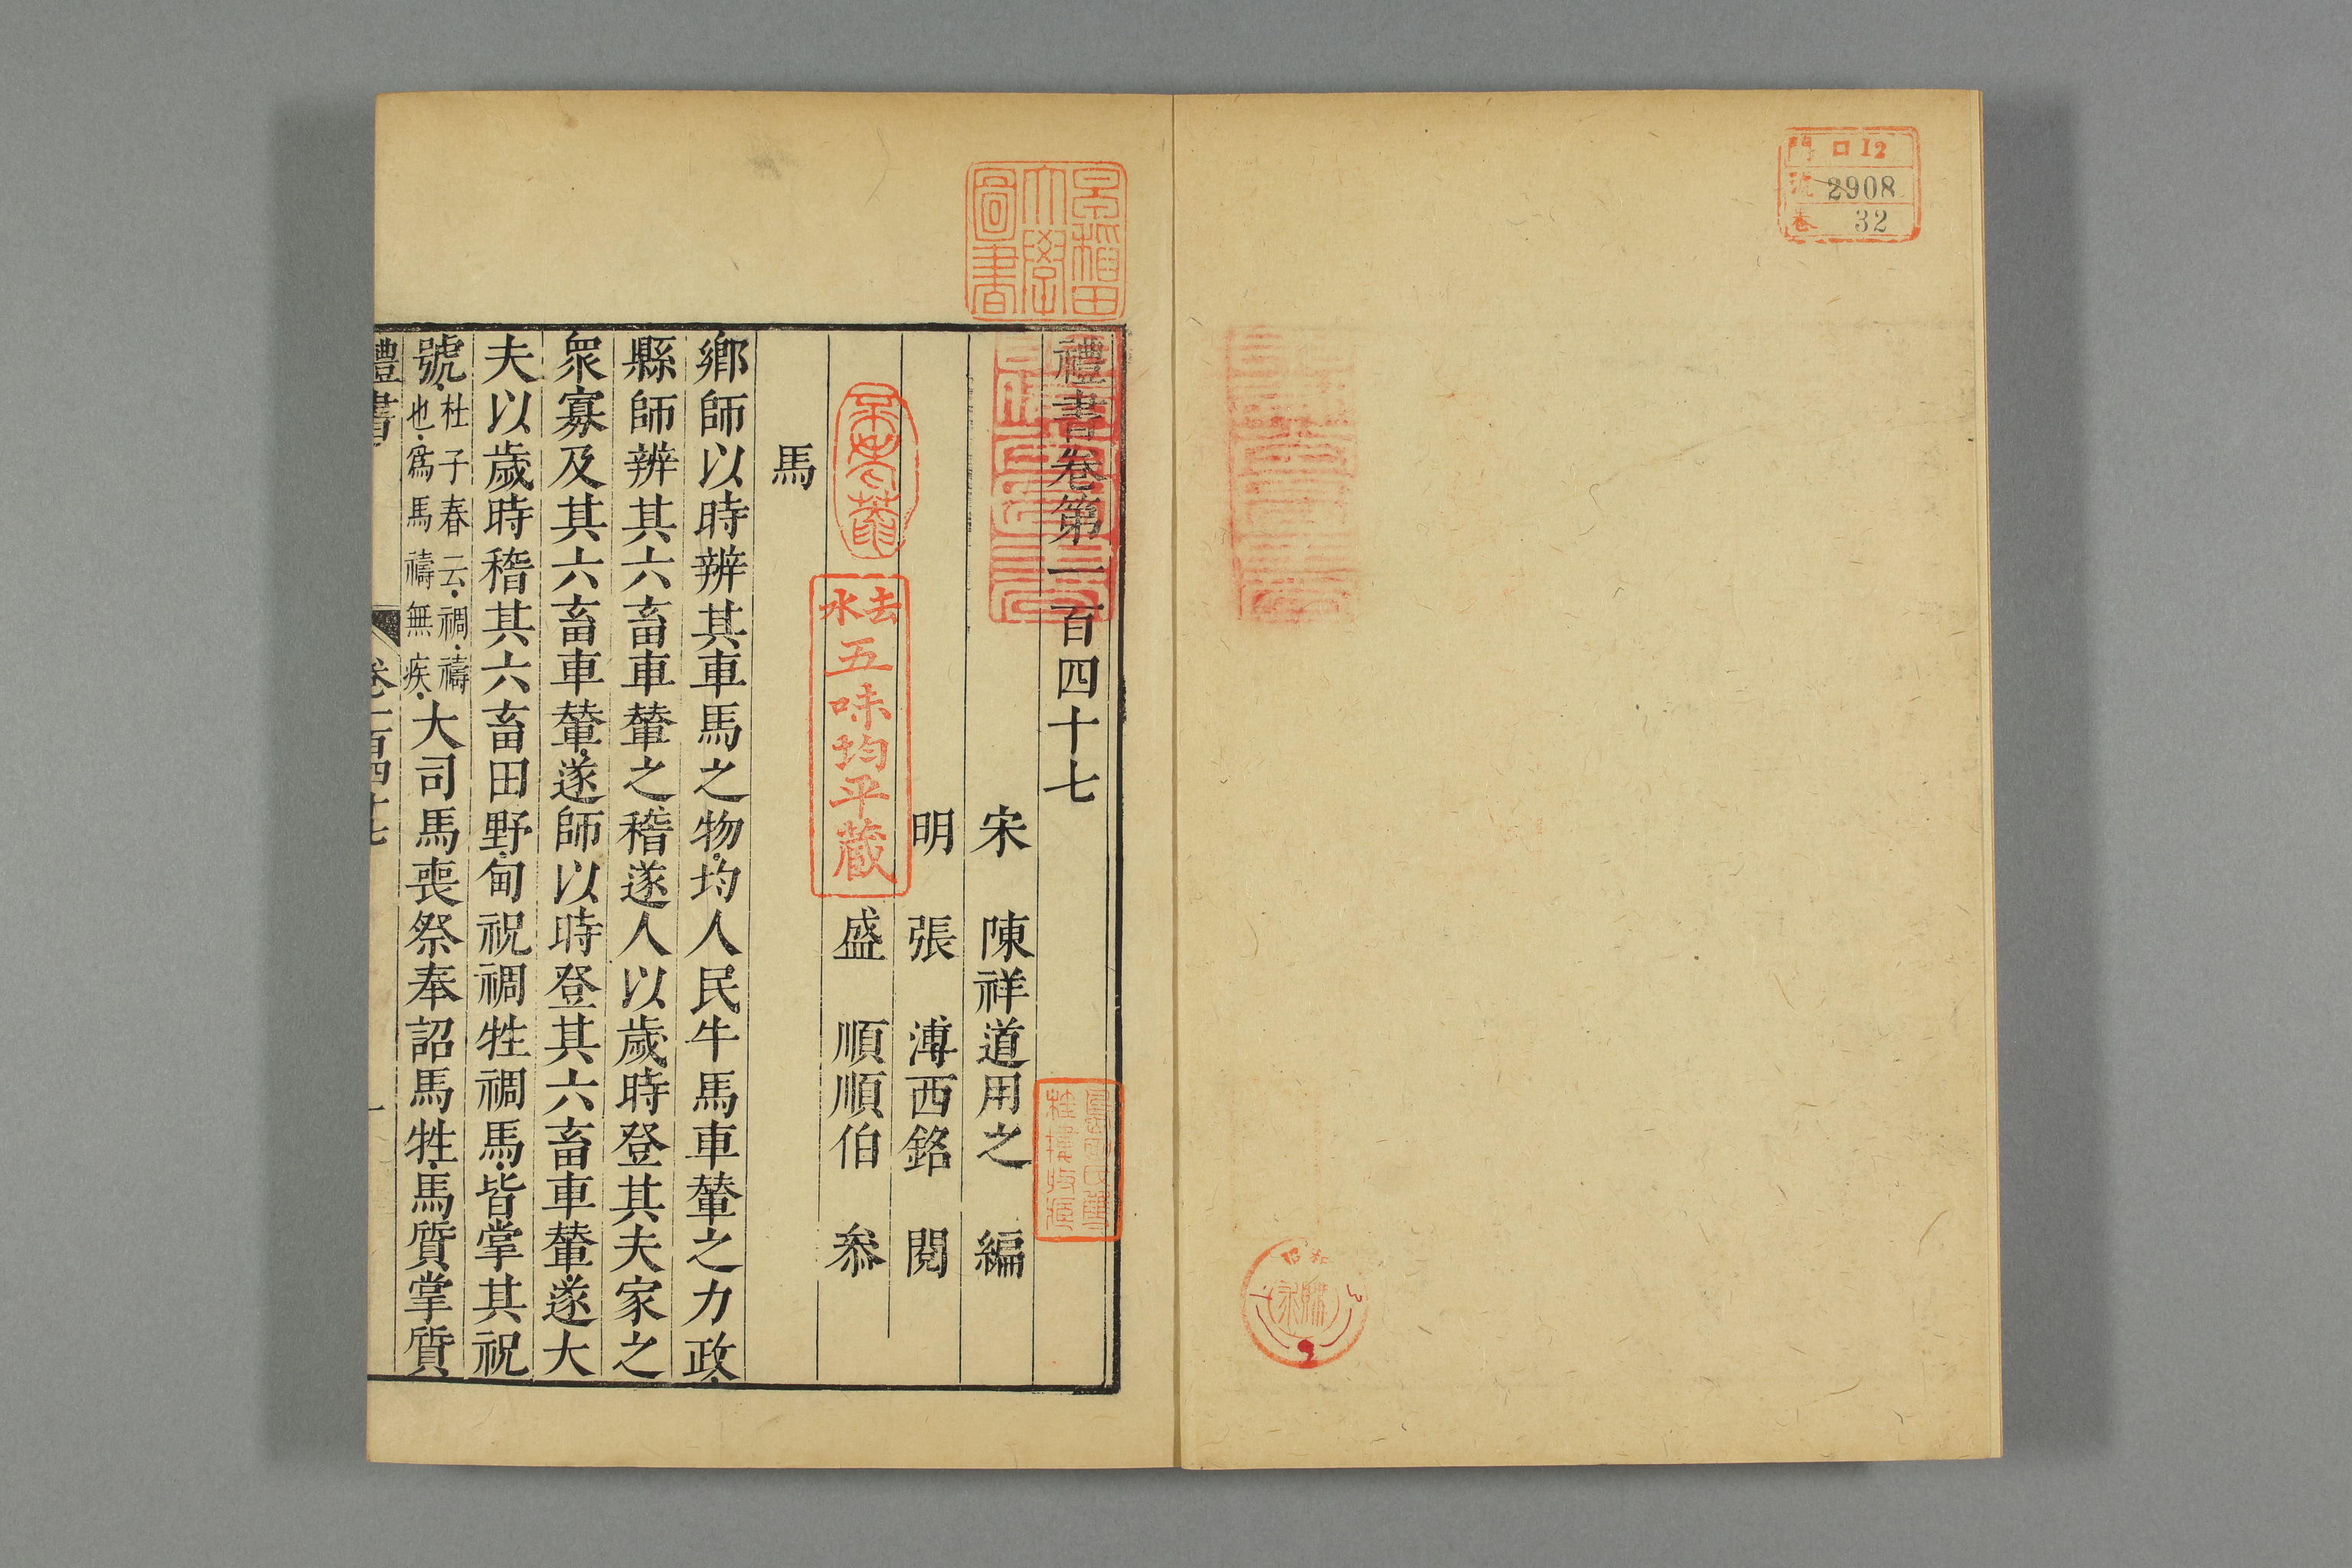 門 ロ12
號 2908
卷 32
早稲田
大學
圖書
禮書卷第一百四十七
宋 陳祥道用之 編
明 張 溥西銘 閱
盛 順順伯 叅
去水
五味均平藏
馬
鄉師以時辨其車馬之物均人民牛馬車輦之力政
縣師辨其六畜車輦之稽遂人以歲時登其夫家之
衆寡及其六畜車輦遂師以時登其六畜車輦遂大
夫以歲時稽其六畜田野甸祝禂牲禂馬皆掌其祝
號杜子春云禂禱
也爲馬禱無疾大司馬喪祭奉詔馬牲馬質掌質
禮書 卷一百四十七 一